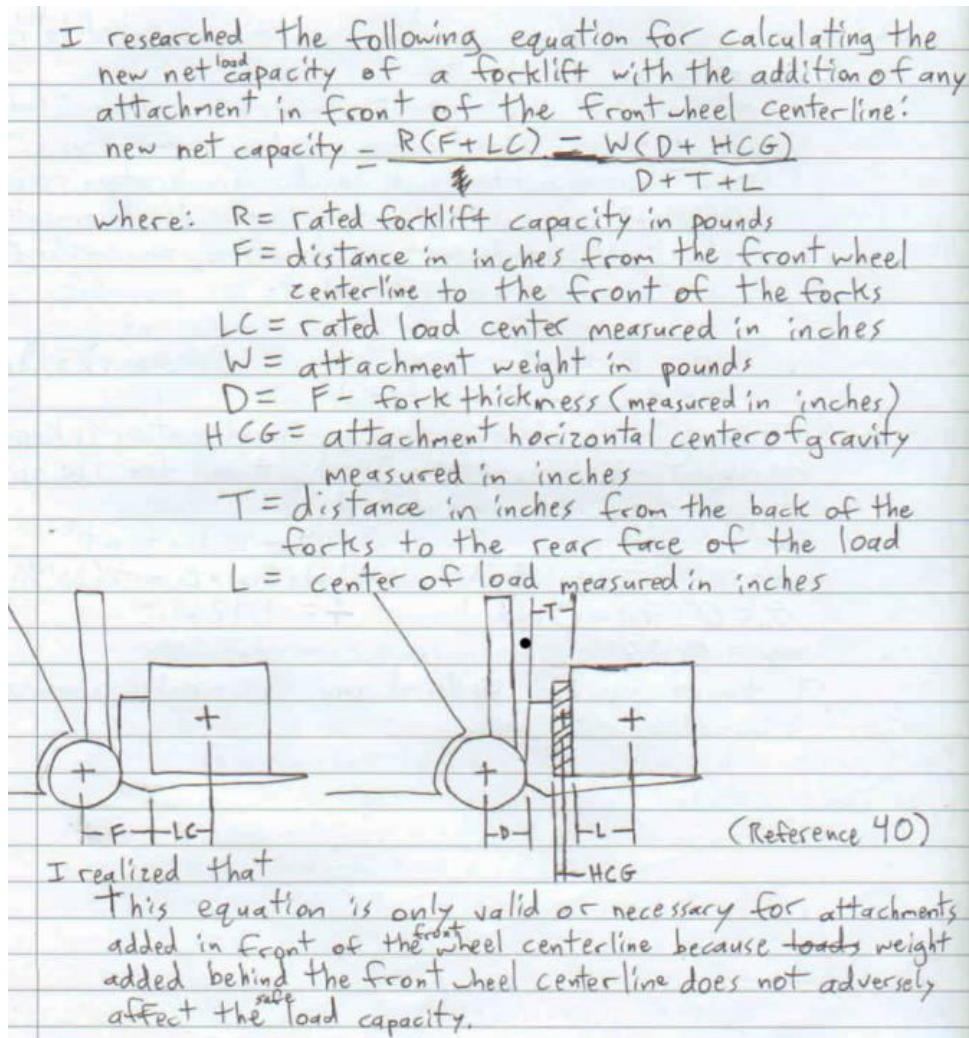 I researched the following equation for calculating the
new net load capacity of a forklift with the addition of any
attachment in front of the front wheel centerline:
new net capacity = R(F+LC) = W(D+HCG)
D+T+L
where: R= rated forklift capacity in pounds
F= distance in inches from the front wheel
centerline to the front of the forks
LC= rated load center measured in inches
W= attachment weight in pounds
D= F- fork thickness (measured in inches)
HCG= attachment horizontal center of gravity
measured in inches
T= distance in inches from the back of the
forks to the rear face of the load
L= center of load measured in inches
T
F LC
D L
HCG
(Reference 40)
I realized that
This equation is only valid or necessary for attachments
added in front of the front wheel centerline because loads weight
added behind the front wheel centerline does not adversely
affect the safe load capacity.